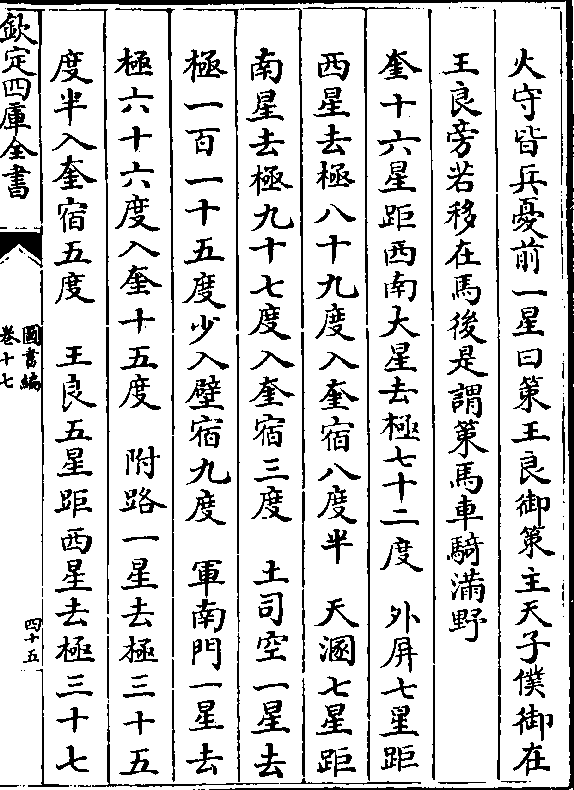 火守皆兵憂前一星曰策王良御策主天子僕御在
王良旁若移在馬後是謂策馬車騎滿野
奎十六星距西南大星去極七十二度　外屏七星距
西星去極八十九度入奎宿八度半　天溷七星距
南星去極九十七度入奎宿三度　土司空一星去
極一百一十五度少入壁宿九度　軍南門一星去
極六十六度入奎十五度　附路一星去極三十五
度半入奎宿五度　王良五星距西星去極三十七
欽定四庫全書
圖書編
卷十七
四十五